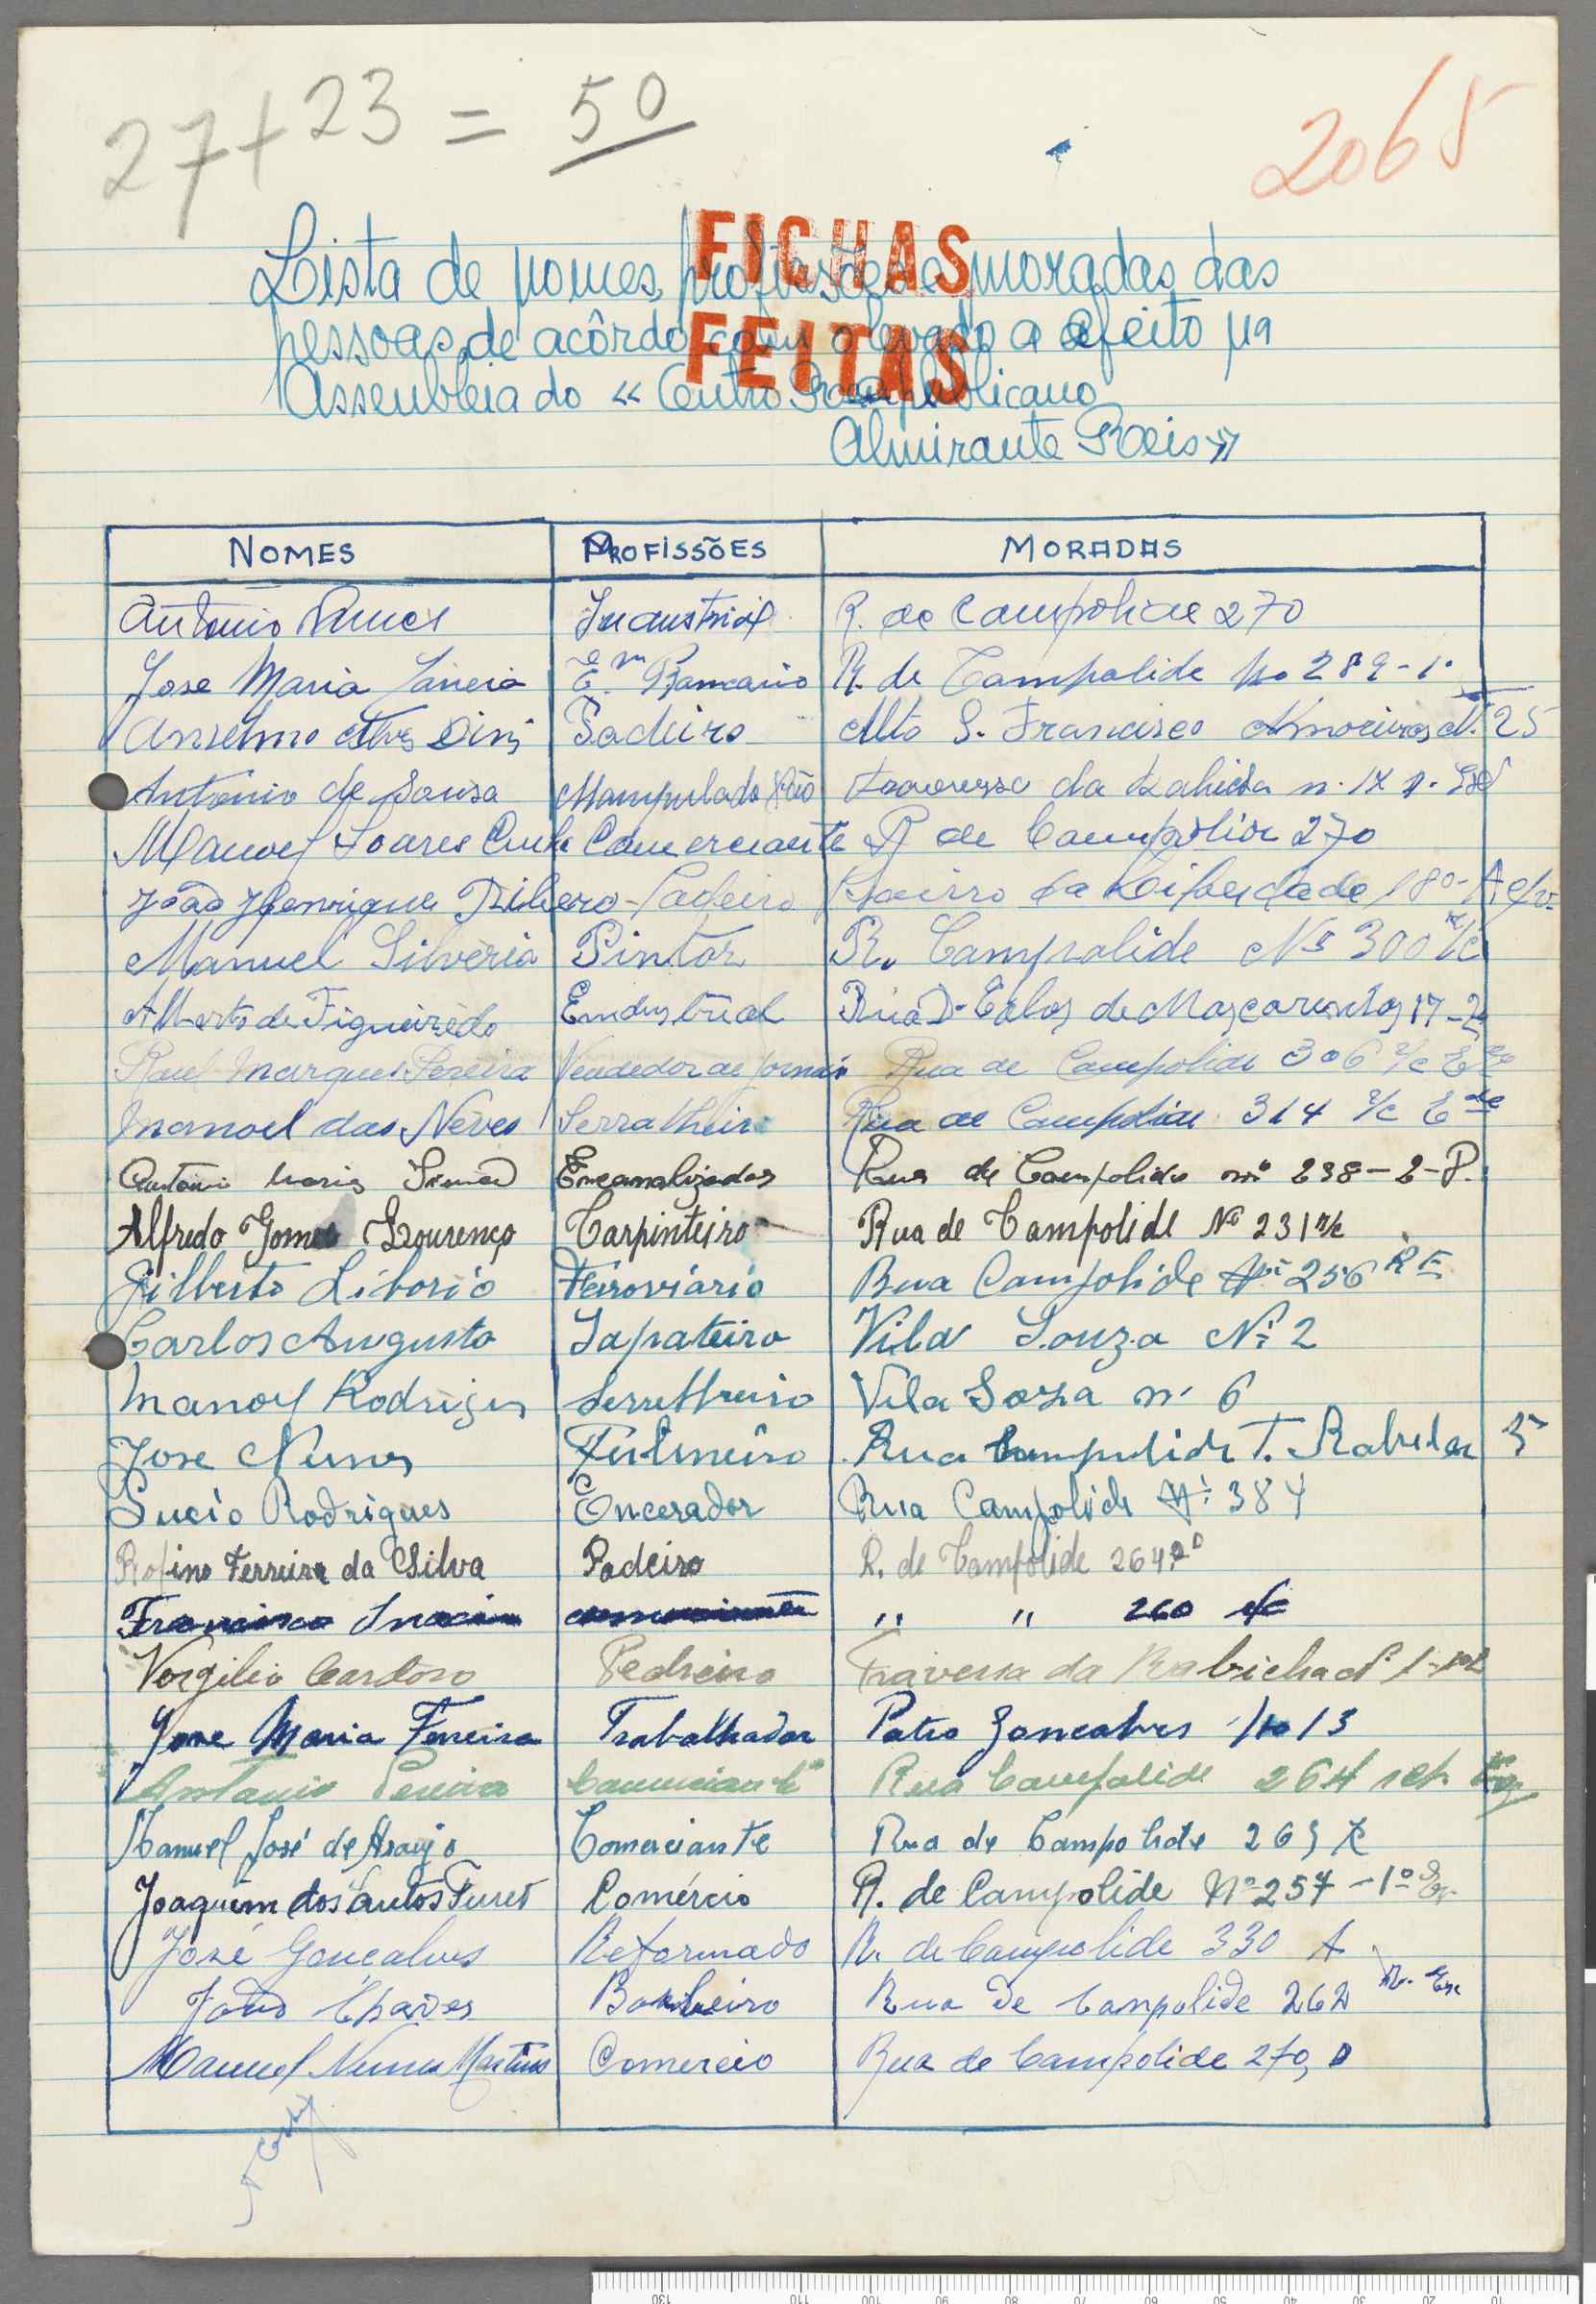 27 + 23 = 50
2065
FICHAS
FEITAS
Lista de nomes, profissões e moradas das
pessoas, de acôrdo com o levado a efeito na
Assembleia do « Centro Republicano
Almirante Reis »
NOMES PROFISSÕES MORADAS
Antonio Industrial R. de Campolide 270
Jose Maria E. Bancario R. de Campolide No 289-1º
Anselmo Alves Padeiro Alto S. Francisco Amoreiras N. 25
António de Sousa Manipulado Pão da n.
Manoel Soares Comerciante R de Campolide 270
João Henrique Ribero Padeiro Bairro da Liberdade 180-A
Manuel Silveria Pintor R. Campolide Nº 300 r/c
Alberto de Figueirêdo Endustrial Rua D. de Mascarenhas 17-2
Raul Marques Pereira Vendedor de jornais Rua de Campolide 306 r/c
Manoel das Neves Serralheiro Rua de Campolide 314 r/c
Maria Encanalizador Rua de Campolide nº 238-2-P.
Alfredo Gomes Lourenço Carpinteiro Rua de Campolide Nº 231 r/c
Gilberto Liborio Ferroviário Rua Campolide Nº 256
Carlos Augusto Sapateiro Vila Souza Nº 2
Manoel Rodrigues Vila Soza nº 6
Jose Nunes Rua T. 5
Lucio Rodrigues Encerador Rua Campolide Nº 384
Rofino Ferreira da Silva Padeiro R. de Campolide 264
Francisco " " 260 r/c
Vergilio Cardoso Pedreiro Travessa da Rabicha nº 1
Jose Maria Ferreira Trabalhador Patio Goncalves No 13
Antonio Pereira Comerciante Rua Campolide 264
Manuel José de Araujo Comerciante Rua de Campolide
Joaquim dos Santos Comércio R. de Campolide Nº 257-1º
José Gonçalves Reformado R. de Campolide 330 A
João Chaves Barbeiro Rua de Campolide 262
Manuel Nunes Martins Comercio Rua de Campolide 270,
130 110 100 90 80 70 60 50 40 30 20 10